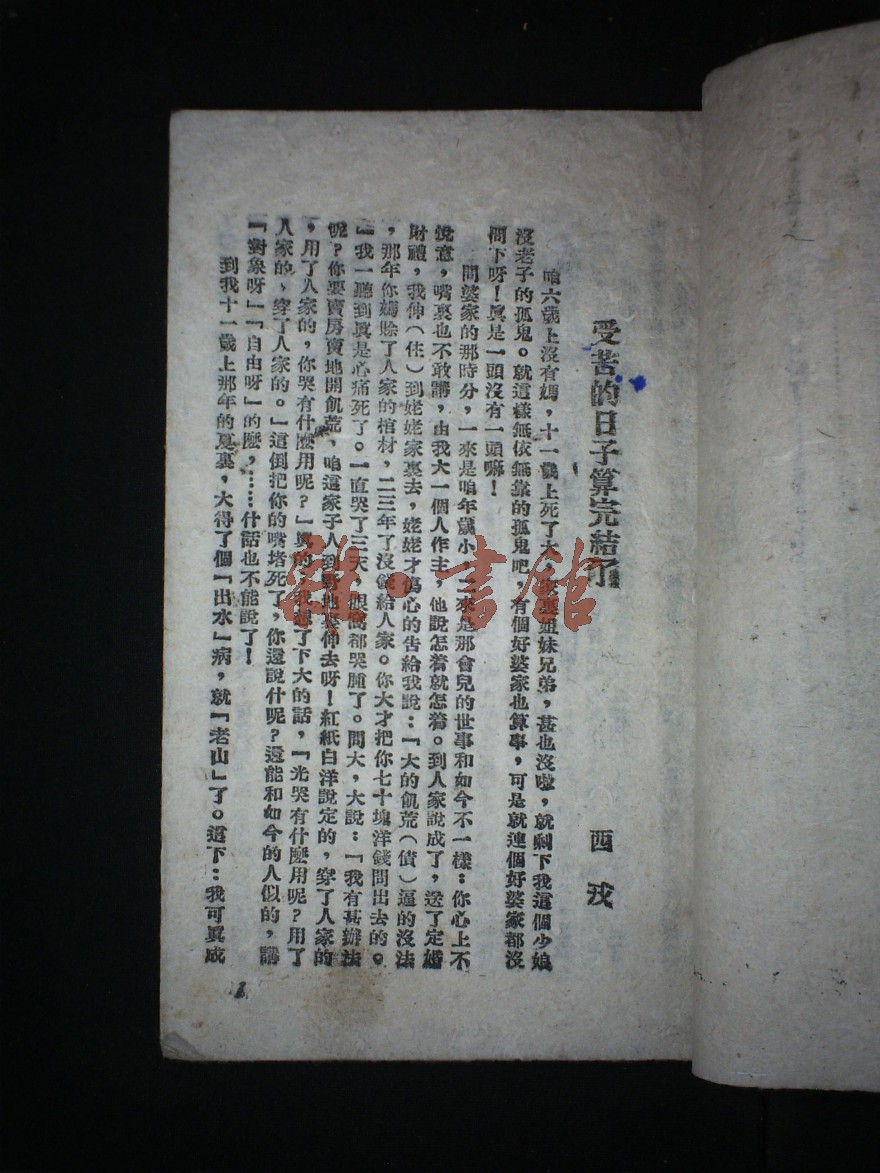 受苦的日子算完結了
西戎
咱六歲上沒有媽，十一歲上死了大，家裏姐妹兄弟，甚也沒啦，就剩下我這個少娘
沒老子的孤鬼。就這樣無依無靠的孤鬼吧，有個好婆家也算事，可是就連個好婆家都沒
問下呀！眞是一頭沒有一頭嘛！
問婆家的那時分，一來是咱年歲小，二來是那會兒的世事和如今不一樣：你心上不
悅意，嘴裏也不敢講，由我大一個人作主，他說怎着就怎着。到人家說成了，送了定婚
財禮，我伸（住）到姥姥家裏去，姥姥才傷心的告給我說：「大的飢荒（債）逼的沒法
，那年你媽賒了人家的棺材，二三年了沒錢給人家。你大才把你七十塊洋錢問出去的。
』我一聽到眞是心痛死了。一直哭了三天，眼窩都哭腫了。問大，大說：「我有甚辦法
呢？你要賣房賣地開飢荒，咱這家子人到野地裏伸去呀！紅紙白洋說定的，穿了人家的
，用了人家的，你哭有什麼用呢？」眞的，我想了下大的話，「光哭有什麼用呢？用了
人家的，穿了人家的。」這倒把你的嘴堵死了，你還說什呢？還能和如今的人似的，講
「對象呀」「自由呀」的麼，……什話也不能說了！
到我十一歲上那年的夏裏，大得了個「出水」病，就「老山」了。這下：我可眞成
1
雜·書館